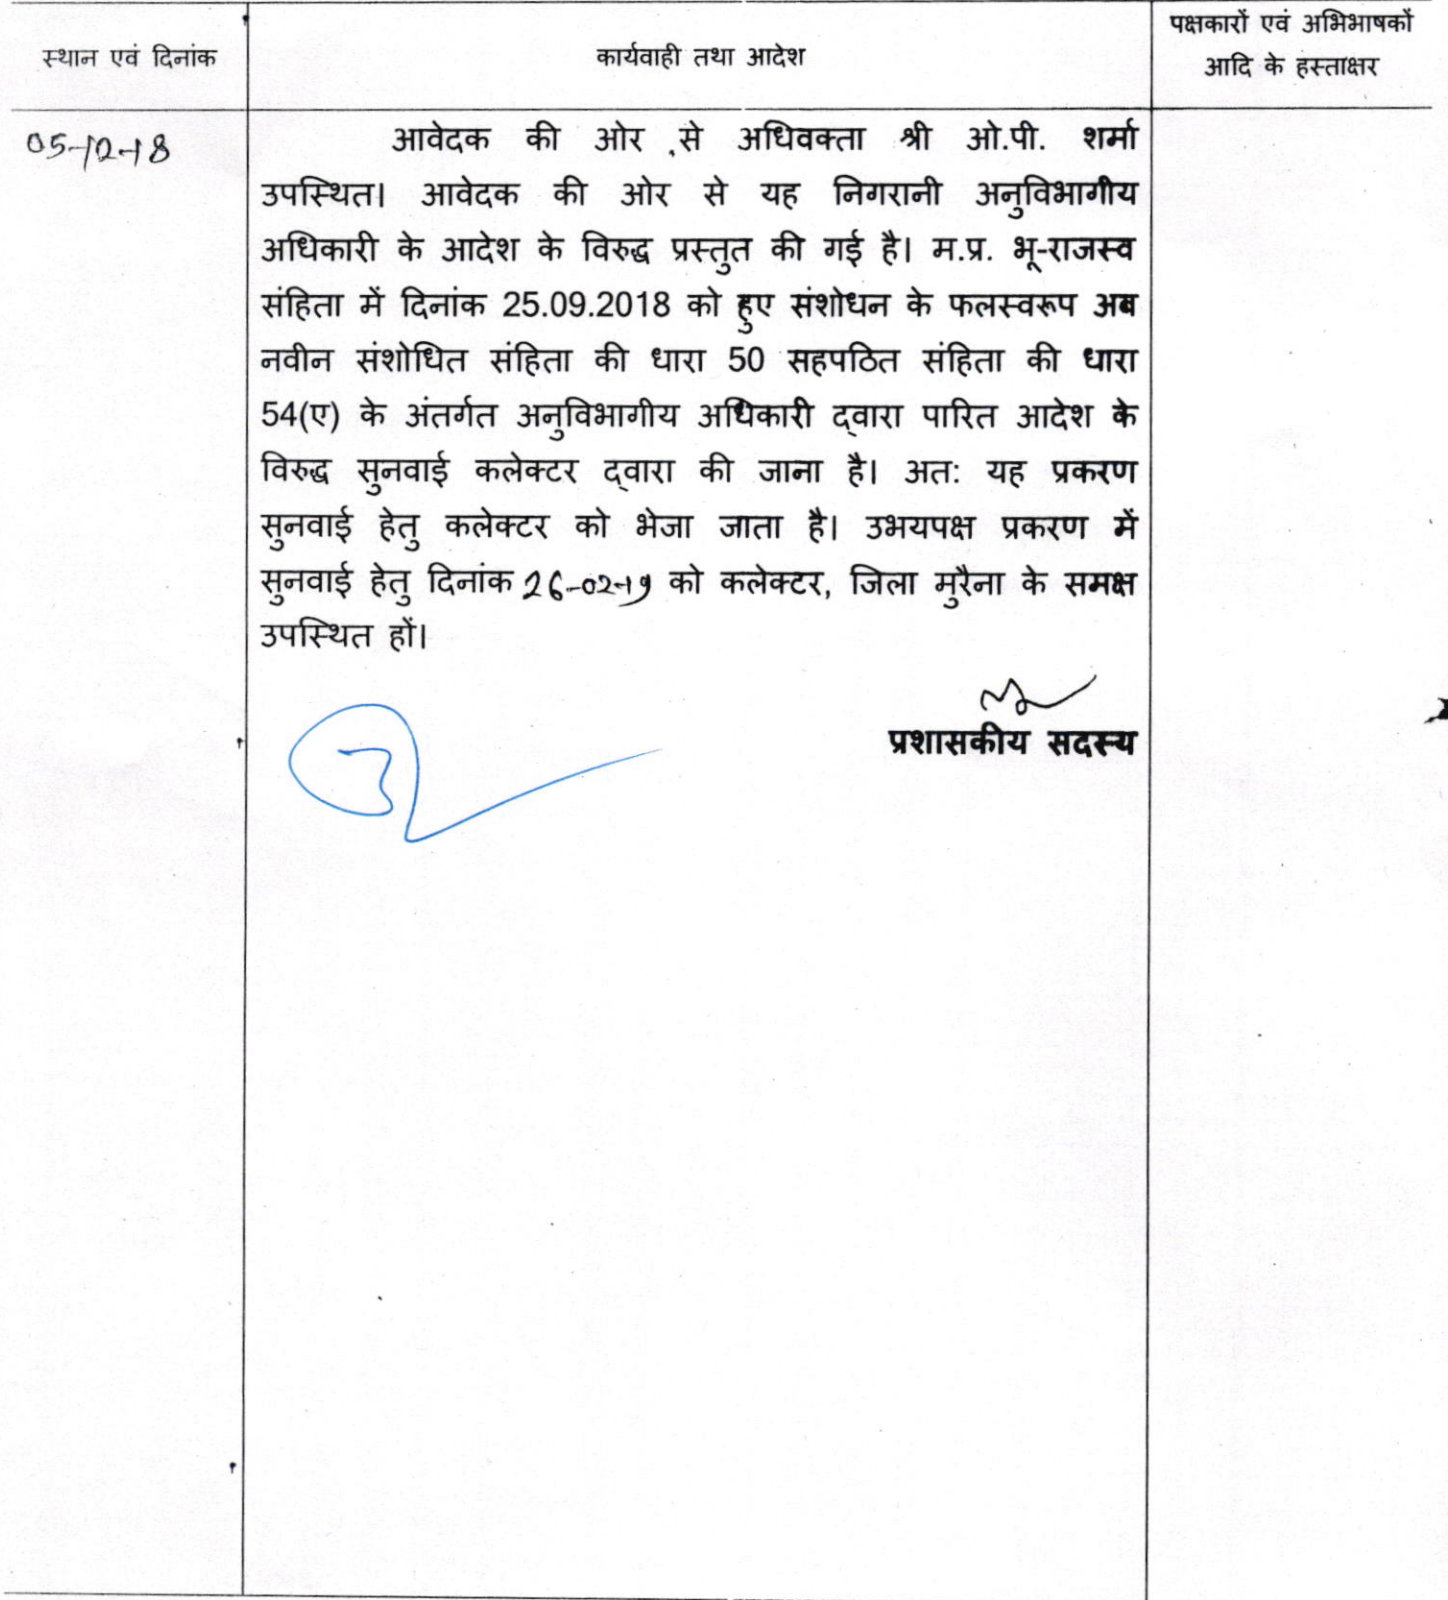 स्थान एवं दिनांक
कार्यवाही तथा आदेश
पक्षकारों एवं अभिभाषकों
आदि के हस्ताक्षर
05-12-18
आवेदक की ओर से अधिवक्ता श्री ओ.पी. शर्मा
उपस्थित। आवेदक की ओर से यह निगरानी अनुविभागीय
अधिकारी के आदेश के विरुद्ध प्रस्तुत की गई है। म.प्र. भू-राजस्व
संहिता में दिनांक 25.09.2018 को हुए संशोधन के फलस्वरूप अब
नवीन संशोधित संहिता की धारा 50 सहपठित संहिता की धारा
54(ए) के अंतर्गत अनुविभागीय अधिकारी द्वारा पारित आदेश के
विरुद्ध सुनवाई कलेक्टर द्वारा की जाना है। अतः यह प्रकरण
सुनवाई हेतु कलेक्टर को भेजा जाता है। उभयपक्ष प्रकरण में
सुनवाई हेतु दिनांक 26-02-19 को कलेक्टर, जिला मुरैना के समक्ष
उपस्थित हों।
प्रशासकीय सदस्य